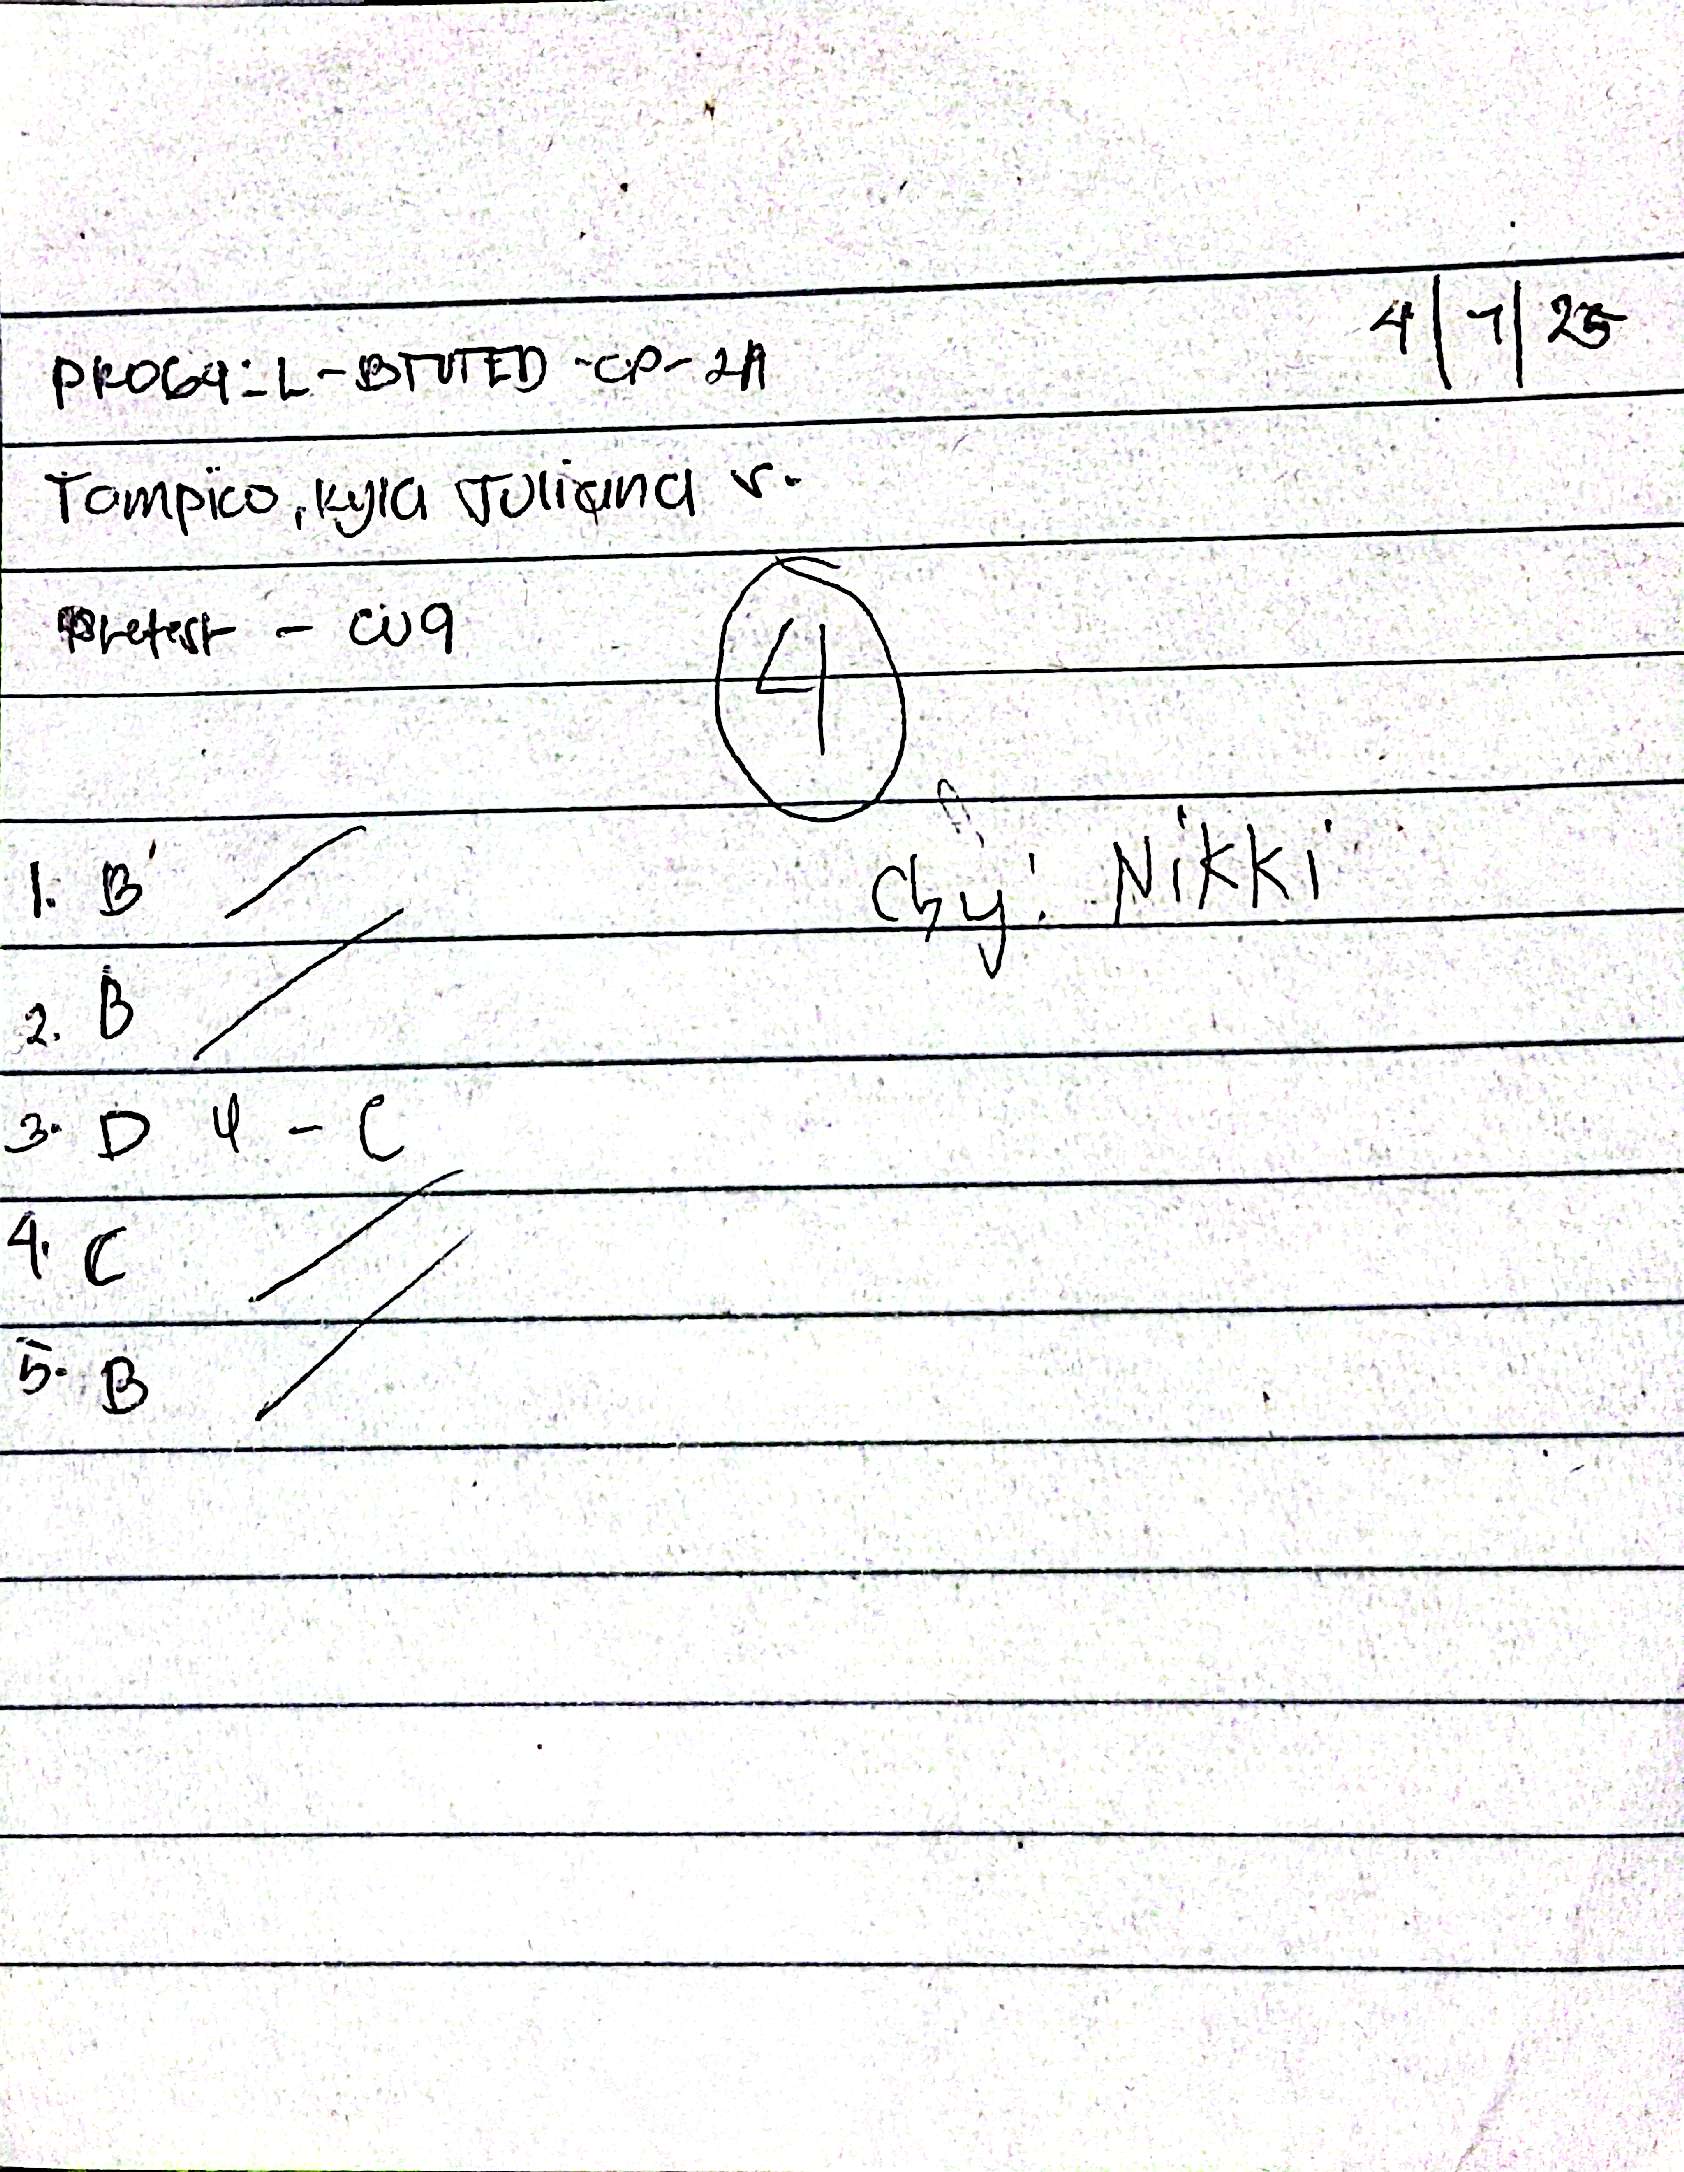 4|7|25
PRO64:L-BTVTED-CP-2A
Tampico, Kyla Juliana V.
Pretest - CU9
4
1. B
Cby: Nikki
2. B
3. D 4 - C
4. C
5. B